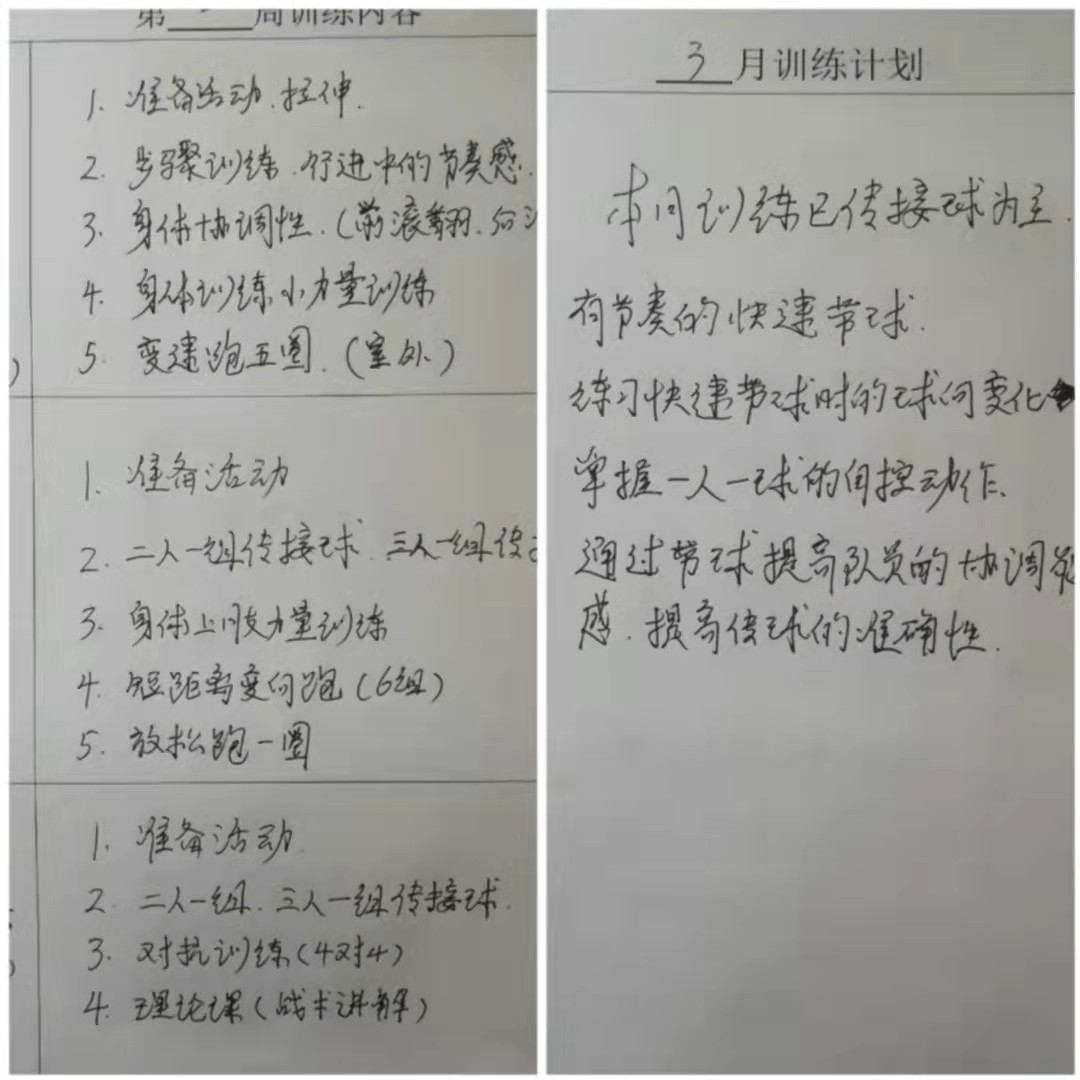 第 一 周训练内容
1. 准备活动.拉伸.
2. 步骤训练.行进中的节奏感.
3. 身体协调性.(前滚翻.后
4. 身体训练小力量训练
5. 变速跑五圈.(室外)
1. 准备活动
2. 二人一组传接球.三人一组传
3. 身体上肢力量训练
4. 短距离变向跑(6组)
5. 放松跑一圈
1. 准备活动.
2. 二人一组.三人一组传接球.
3. 对抗训练(4对4)
4. 理论课(战术讲解)
3 月训练计划
本月训练已传接球为主.
有节奏的快速带球.
练习快速带球时的球向变化
掌握一人一球的自控动作.
通过带球提高队员的协调
感.提高传球的准确性.